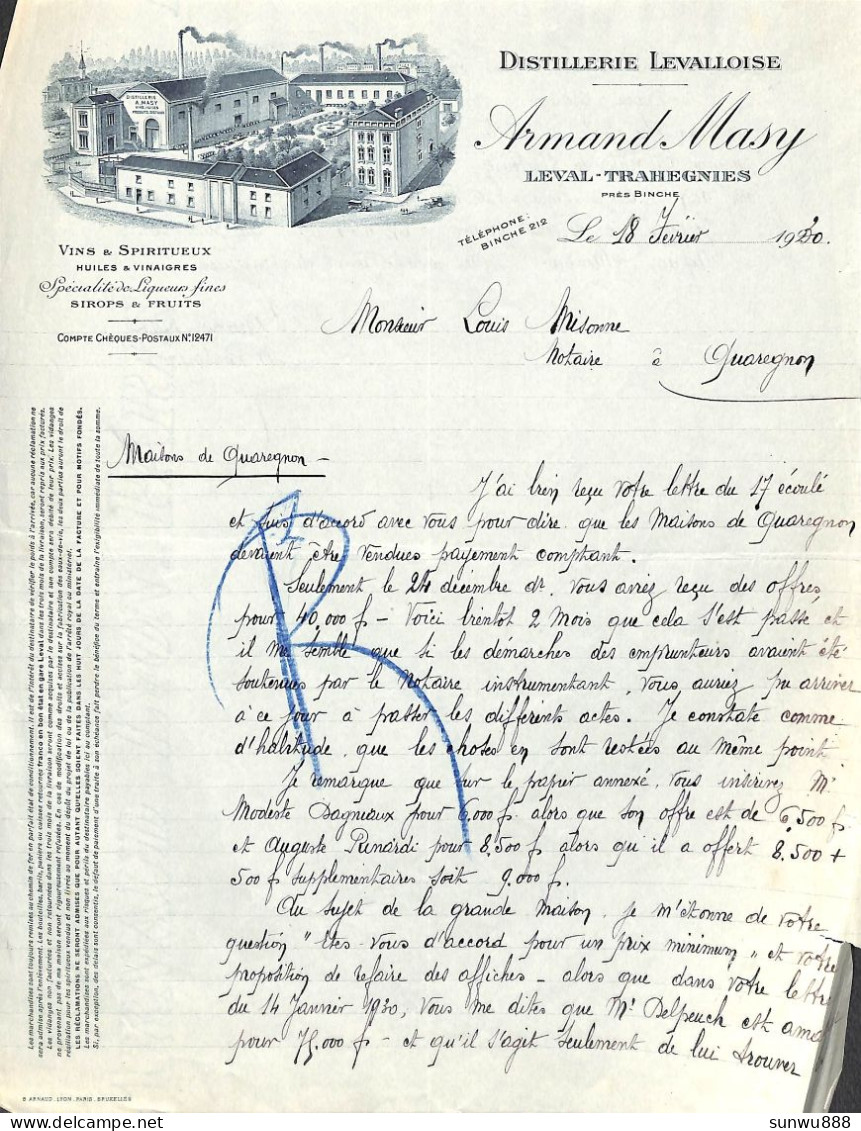 DISTILLERIE
A. MASY
DISTILLERIE LEVALLOISE
Armand Masy
LEVAL-TRAHEGNIES
PRÈS BINCHE
TÉLÉPHONE:
BINCHE 212
Le 18 Février 1930.
VINS & SPIRITUEUX
HUILES & VINAIGRES
Spécialité de Liqueurs fines
SIROPS & FRUITS
COMPTE CHÈQUES-POSTAUX N° 12471
Monsieur Louis Misonne
Notaire à Quaregnon
Maisons de Quaregnon -
J'ai bien reçu votre lettre du 17 écoulé
et suis d'accord avec vous pour dire que les Maisons de Quaregnon
devaient être vendues payement comptant.
Seulement le 24 décembre dr. vous aviez reçu des offres
pour 40,000 f - Voici bientôt 2 mois que cela s'est passé et
il me semble que si les demarches des emprunteurs avaient été
soutenues par le Notaire instrumentant, vous auriez pu arriver
à ce jour à passer les différents actes. Je constate comme
d'habitude que les choses en sont restées au même point.
Je remarque que sur le papier annexé, vous inscrivez Mr
Modeste Dagneaux pour 6,000 f. alors que son offre est de 6,500 f
et Auguste Pinardi pour 8,500 f alors qu'il a offert 8.500 +
500 f supplementaires soit 9.000 f.
Au sujet de la grande maison, je m'étonne de votre
question " êtes-vous d'accord pour un prix minimum " et votre
proposition de refaire des affiches - alors que dans votre lettre
du 14 Janvier 1930, vous me dites que Mr Delpeuch est
pour 75.000 f - et qu'il s'agit seulement de lui trouver
Les marchandises sont toujours remises au chemin de fer en parfait état de conditionnement, il est de l'intérêt du destinataire de vérifier le poids à l'arrivée, car aucune réclamation ne
sera admise après l'enlèvement. Les bouteilles, barils, paniers ou caisses retournés franco en bon état en gare Leval dans les trois mois de la livraison, seront repris aux prix facturés.
Les vidanges non facturées et non retournées dans les trois mois de la livraison seront comme acquises par le destinataire et son compte sera débité de leur prix. Les vidanges
ne provenant pas de ma maison seront rigoureusement refusées. En cas de modification des droits et accises sur la fabrication des eaux-de-vie, les deux parties auront le droit de
résiliation pour les spiritueux vendus et non livrés au moment du dépôt du projet de loi ou de la publication de l'arrêté royal ou ministériel.
LES RÉCLAMATIONS NE SERONT ADMISES QUE POUR AUTANT QU'ELLES SOIENT FAITES DANS LES HUIT JOURS DE LA DATE DE LA FACTURE ET POUR MOTIFS FONDÉS.
Les marchandises sont expédiées aux risques et périls du destinataire payables ici au comptant.
Si, par exception, des délais sont consentis, le défaut de paiement d'une traite à son échéance fait perdre le bénéfice du terme et entraîne l'exigibilité immédiate de toute la somme.
B ARNAUD. LYON. PARIS. BRUXELLES
sunwu888